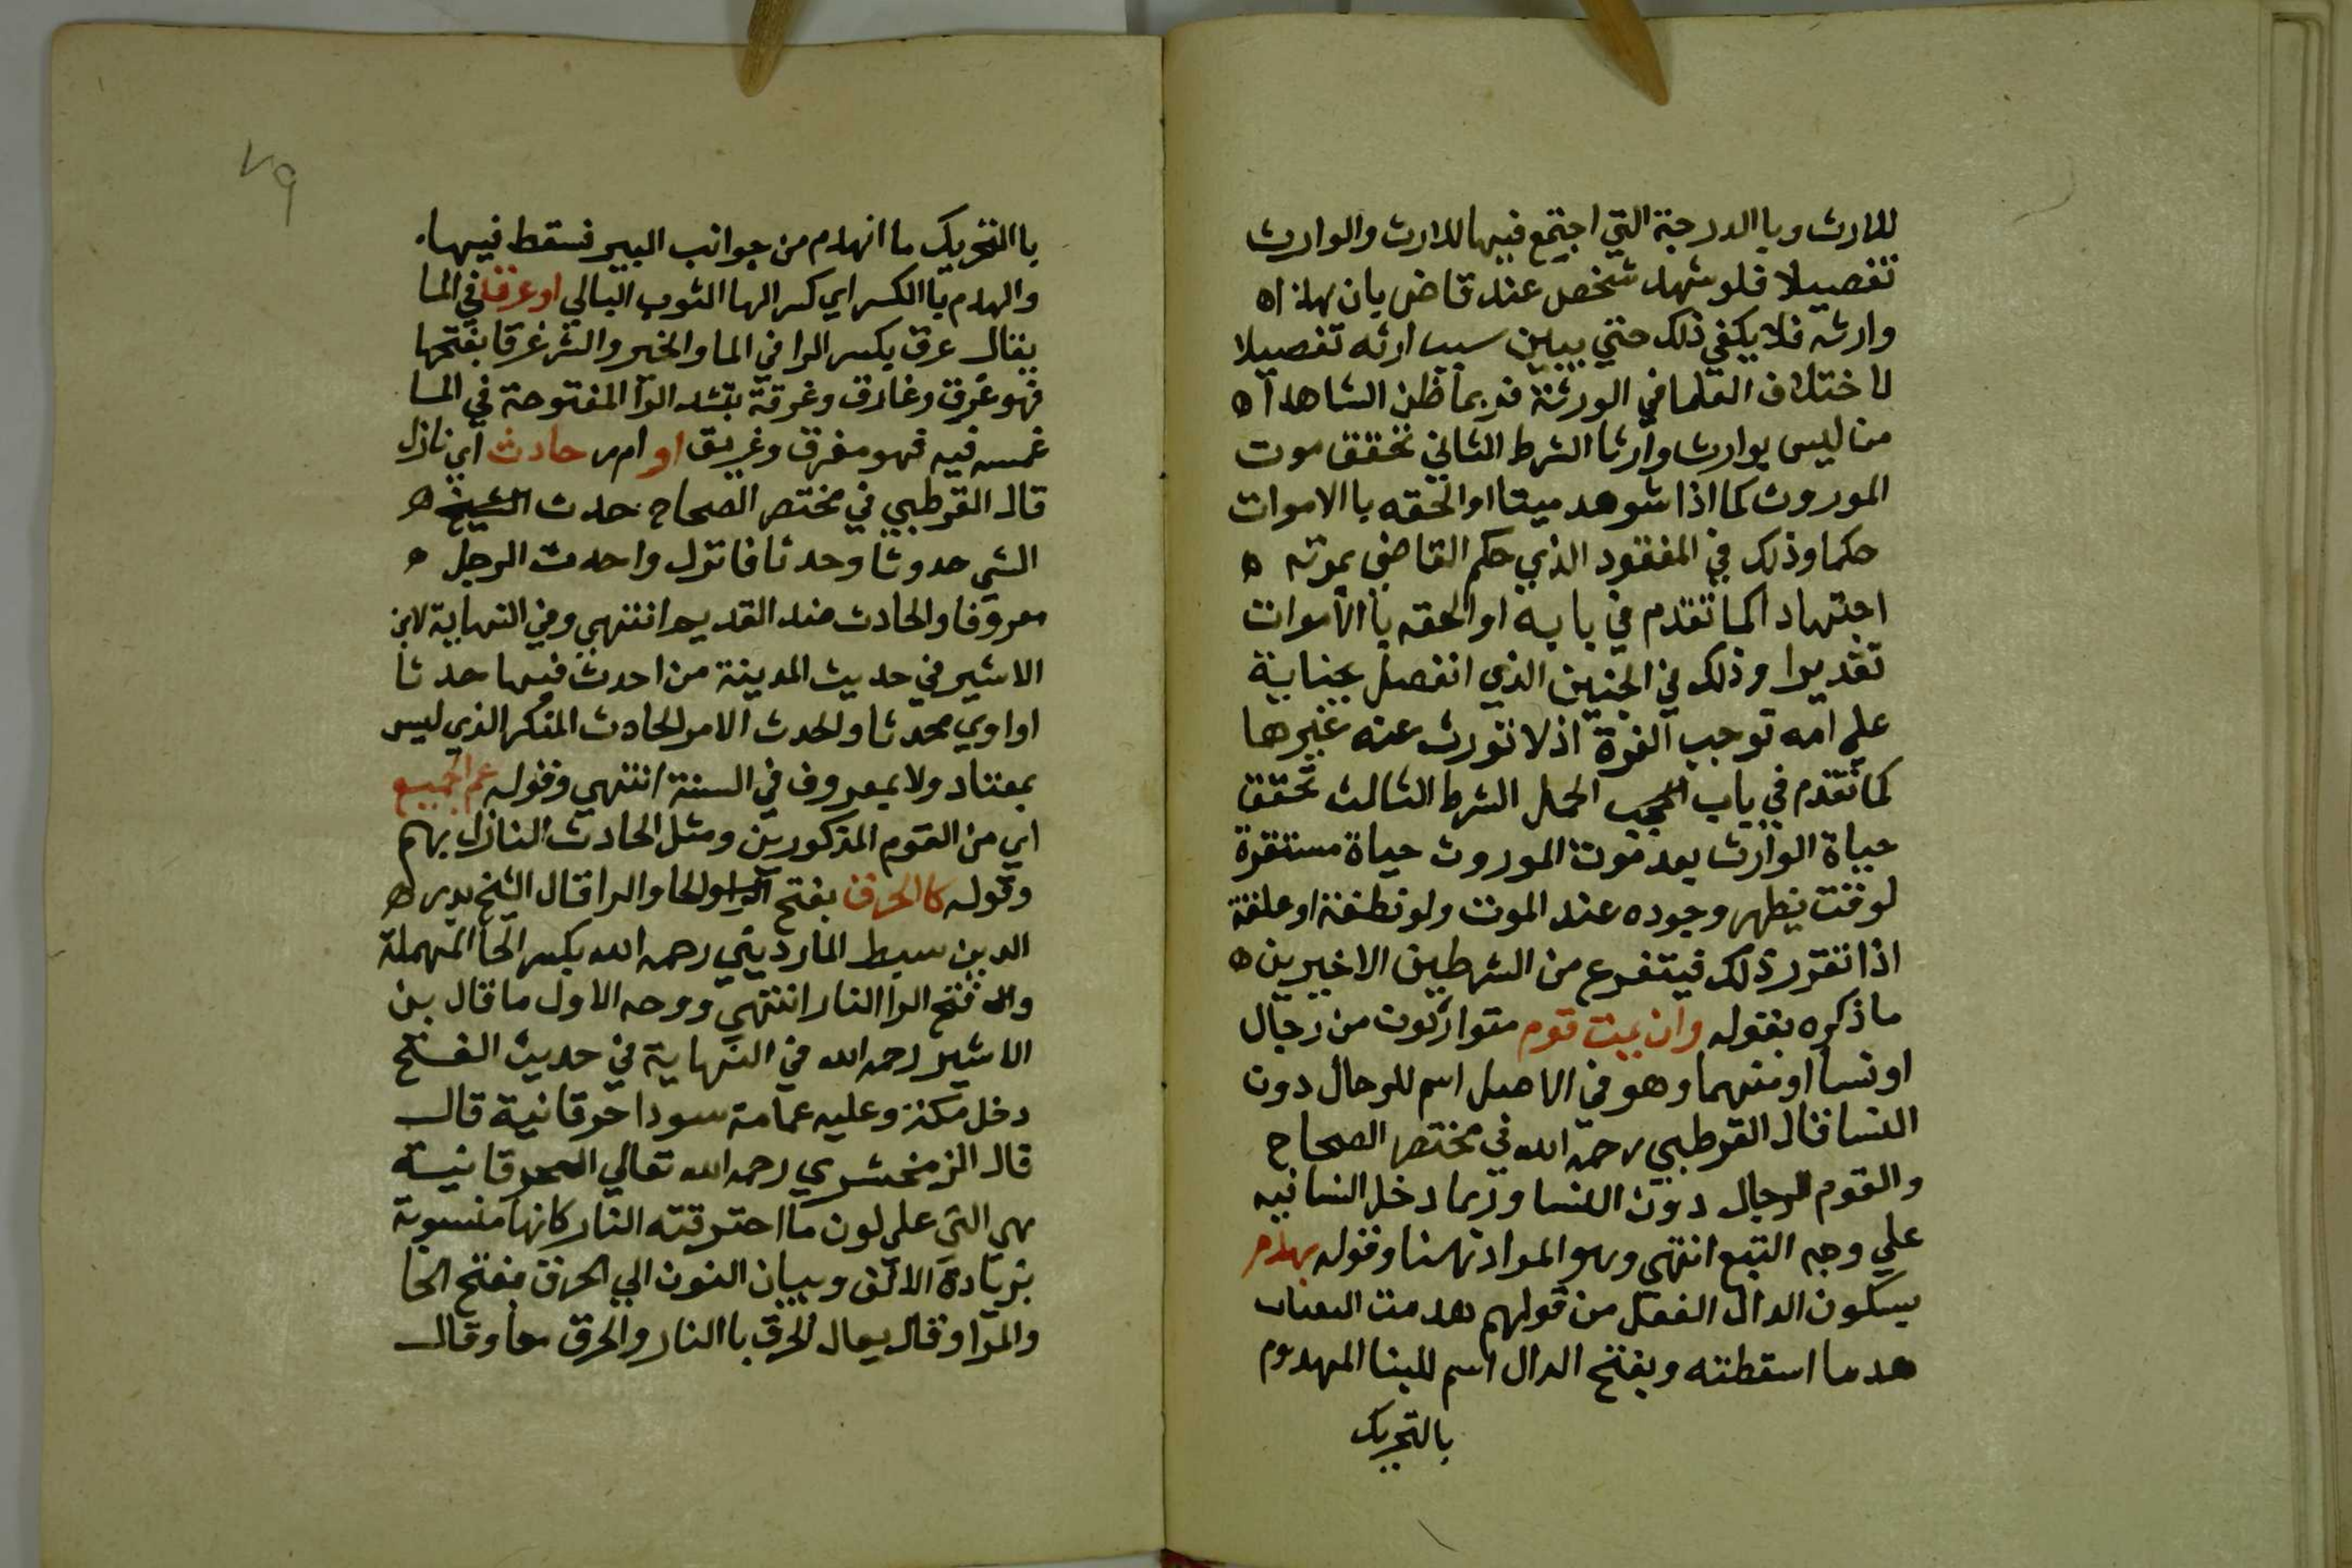 للارث وبا الدرجة التي اجتمع فيها للارث والوارث
تفصيلا فلو شهد شخص عند قاض بان هذا ه
وارثه فلا يكفي ذلك حتي يبين سبب ارثه تفصيلا
لاختلاف العلما في الورثة فربما ظن الشاهد ا ه
من ليس بوارث وارثا الشرط الثاني تحقق موت
الموروث كما اذا شوهد ميتا او الحقه با الاموات
حكما وذلك في المفقود الذي حكم القاضي بموته ه
اجتهادا كما تقدم في بابه او الحقه با الاموات
تقديرا وذلك في الجنين الذي انفصل بجناية
علي امه توجب الغرة اذ لا تورث عنه غيرها
كما تقدم في باب الحجب الحمل الشرط الثالث تحقق
حياة الوارث بعد موت الموروث حياة مستقرة
لوقت يظهر وجوده عند الموت ولو نطفة او علقة
اذا تقرر ذلك فيتفرع من الشرطين الاخيرين ه
ما ذكره بقوله وان يمت قوم متوارثون من رجال
او نسا او منهما وهو في الاصل اسم للرجال دون
النسا قال القرطبي رحمه الله في مختصر الصحاح
والقوم الرجال دون النسا وربما دخل النسا فيه
علي وجه التبع انتهي وهو المراد هنا وقوله بهدم
بسكون الدال الفعل من قولهم هدمت البنا
هدما اسقطته وبفتح الدال اسم للبنا المهدوم
بالتحريك
٧٩
با التحريك ما انهدم من جوانب البير فسقط فيها.
والهدم با الكسر اي كسر الها الثوب البالي او غرقا في الما
يقال غرق بكسر الرا في الما والخير والشر غرقا بفتحها
فهو غرق وغارق وغرقه بتشد الرا المفتوحة في الما
غمسه فيه فهو مغرق وغريق او امر حادث اي نازل
قال القرطبي في مختصر الصحاح حدث الشيخ ه
الشي حدوثا وحدثا فانزل واحدث الرجل ه
معروفا والحادث ضد القديم انتهي وفي النهاية لابن
الاثير في حديث المدينة من احدث فيها حدثا
او اوي محدثا والحدث الامر الحادث المنكر الذي ليس
بمعتاد ولا بمعروف في السنة انتهي وقوله عم الجميع
اي من القوم المذكورين ومثل الحادث النازل بهم
وقوله كا الحرق بفتح الحا والرا قال الشيخ بدر ه
الدين سبط المارديني رحمه الله بكسر الحا المهملة
وفتح الرا النار انتهي ووجه الاول ما قال بن
الاثير رحمه الله في النهاية في حديث الفتح
دخل مكة وعليه عمامة سودا حرقانية قال
قال الزمخشري رحمه الله تعالي الحرقانية
هي التي علي لون ما احترقته النار كانها منسوبة
بزيادة الالف وبيان النون الي الحرق بفتح الحا
والرا وقال يقال الحرق با النار والحرق معا وقال